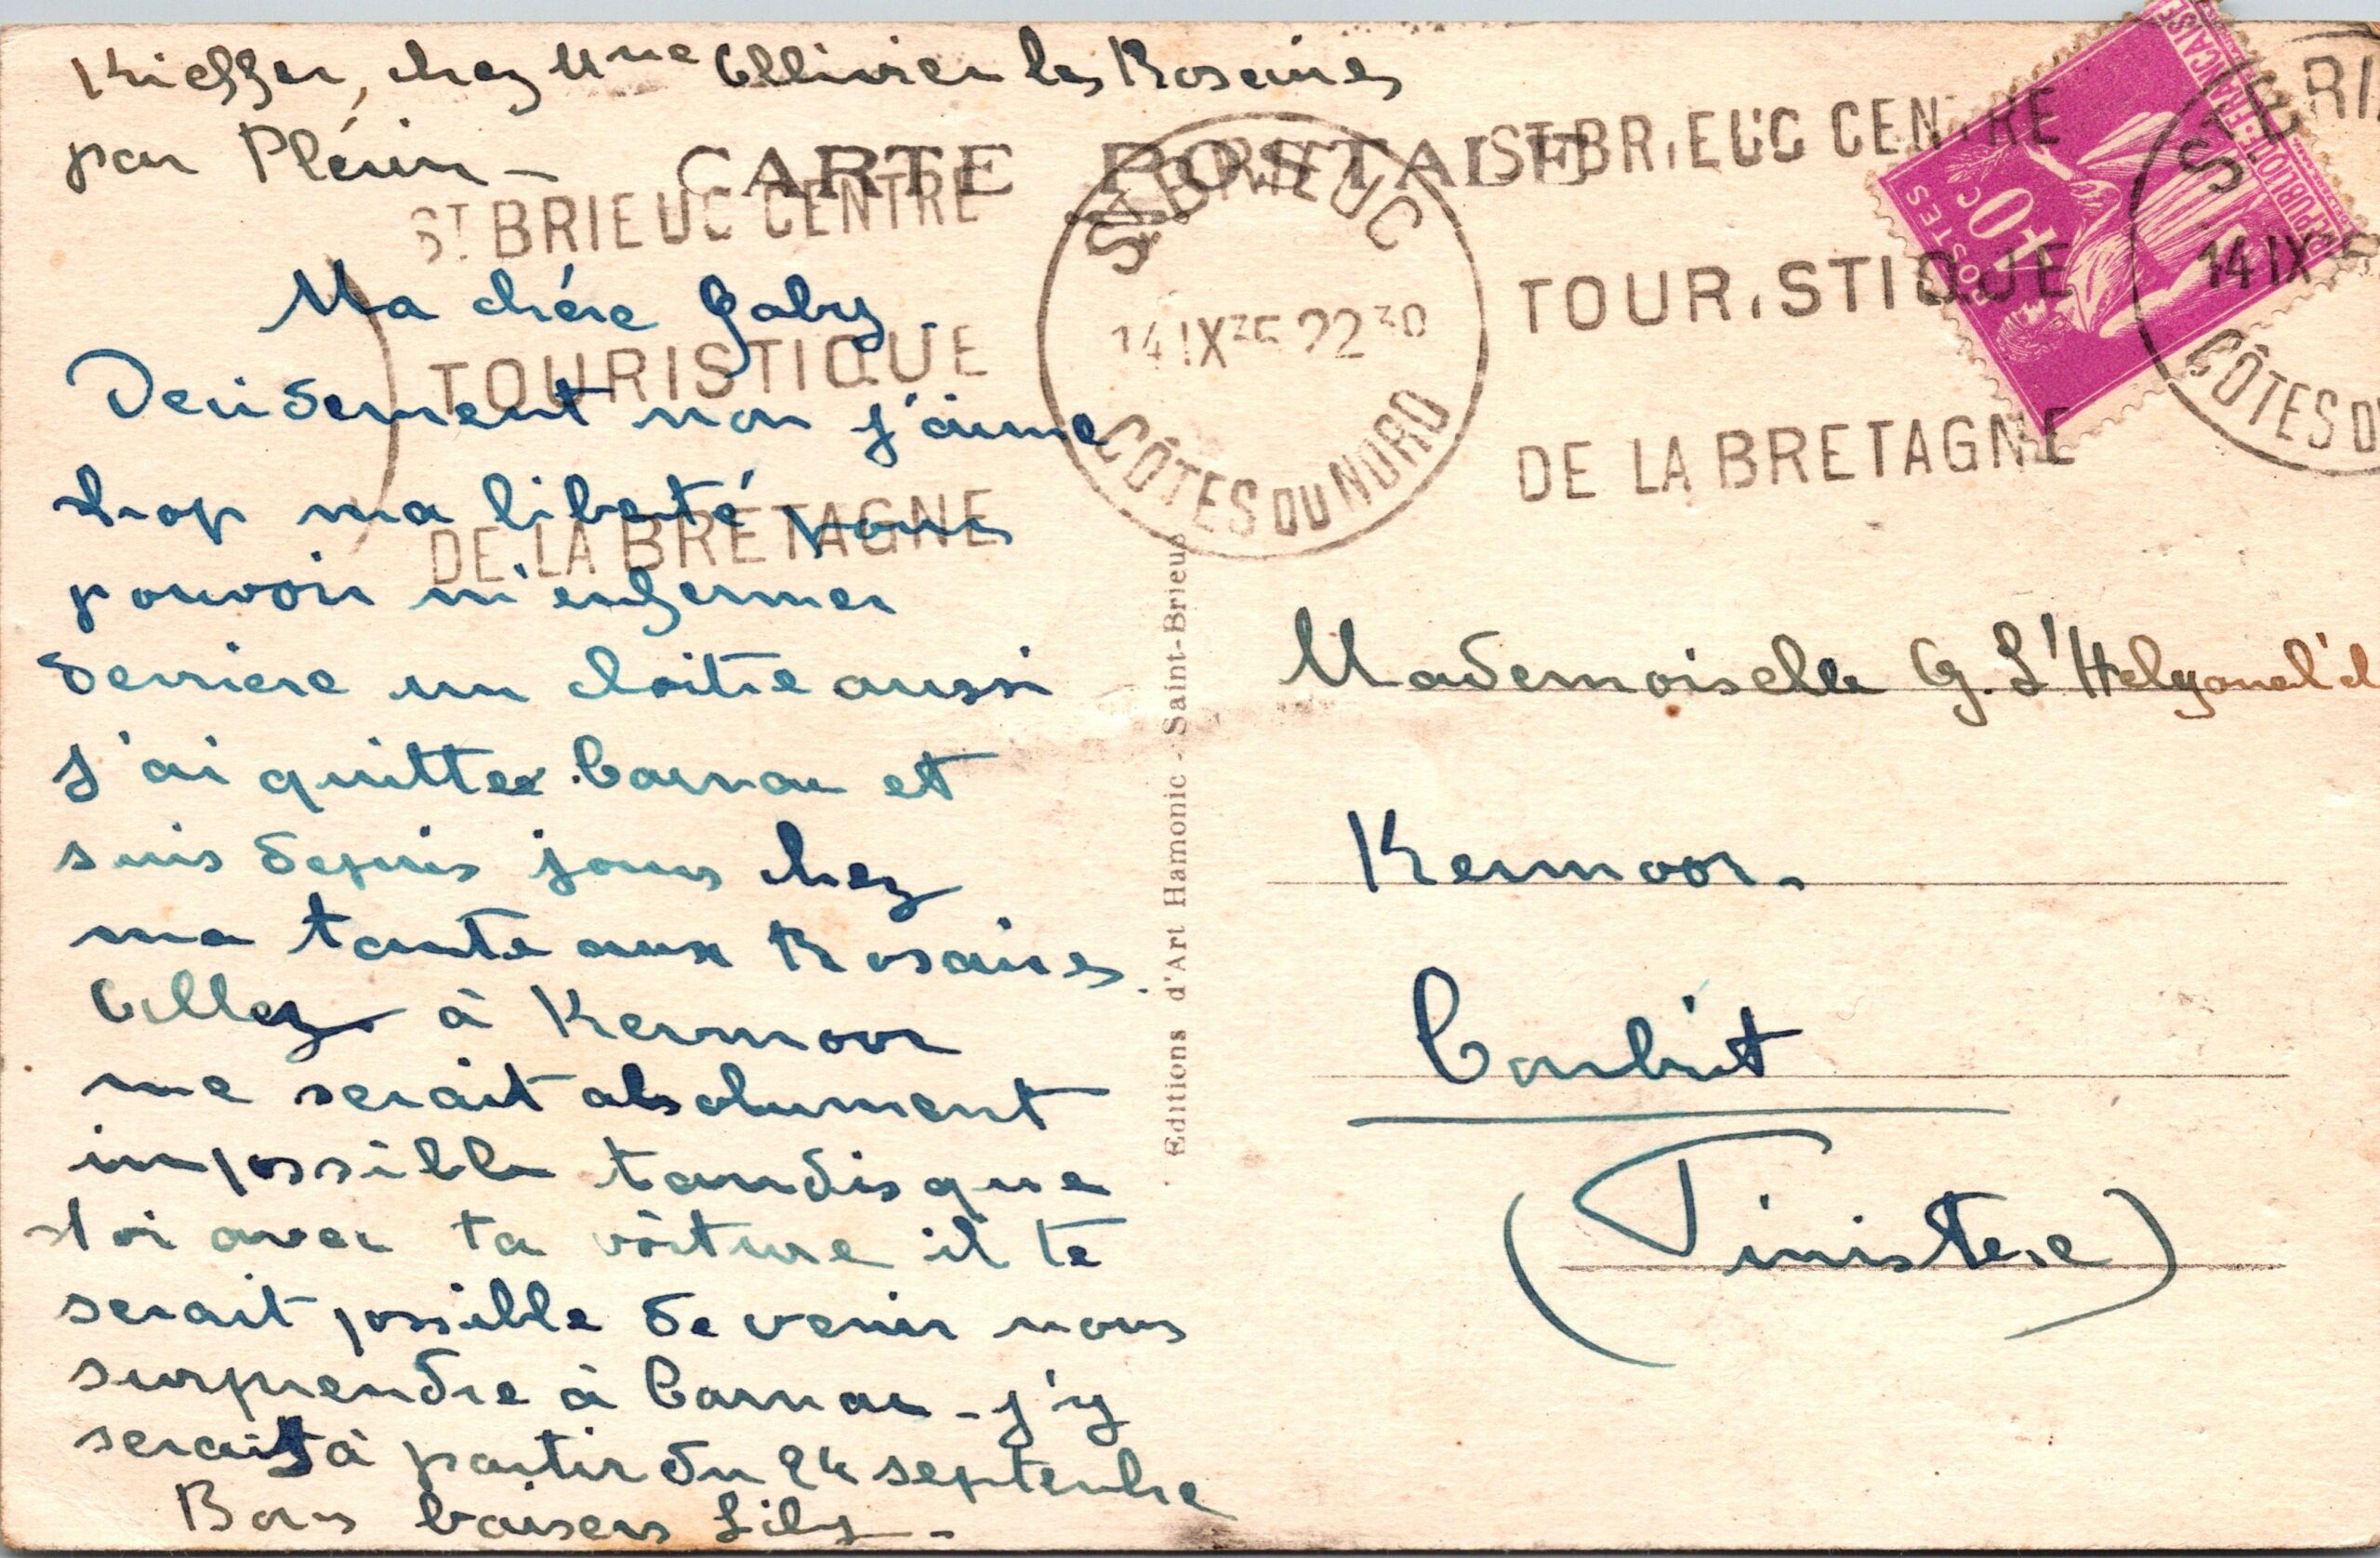 Kieffer, chez Mme Ollivier les Rosaires
par Plérin -
CARTE POSTALE
ST BRIEUC CENTRE
TOURISTIQUE
DE LA BRETAGNE
ST BRIEUC
14 IX 35 22 30
CÔTES DU NORD
ST BRIEUC CENTRE
TOURISTIQUE
DE LA BRETAGNE
POSTES
40c
REPUBLIQUE FRANÇAISE
ST BRI
14 IX
CÔTES DU
Ma chére Gaby.
Decidement non j'aime
trop ma liberté pour
pouvoir m'enfermer
derriere un cloitre aussi
j'ai quittee Carnac et
suis depuis jours chez
ma tante aux Rosaires.
Allez à Kermoor
me serait absolument
impossible tandis que
toi avec ta voiture il te
serait possible de venir nous
surprendre à Carnac - j'y
serais à partir du 24 septembre
Bons baisers Lily -
Editions d'Art Hamonic - Saint-Brieuc
Mademoiselle G. L'Helgoual'ch
Kermoor.
Combrit
(Finistere)